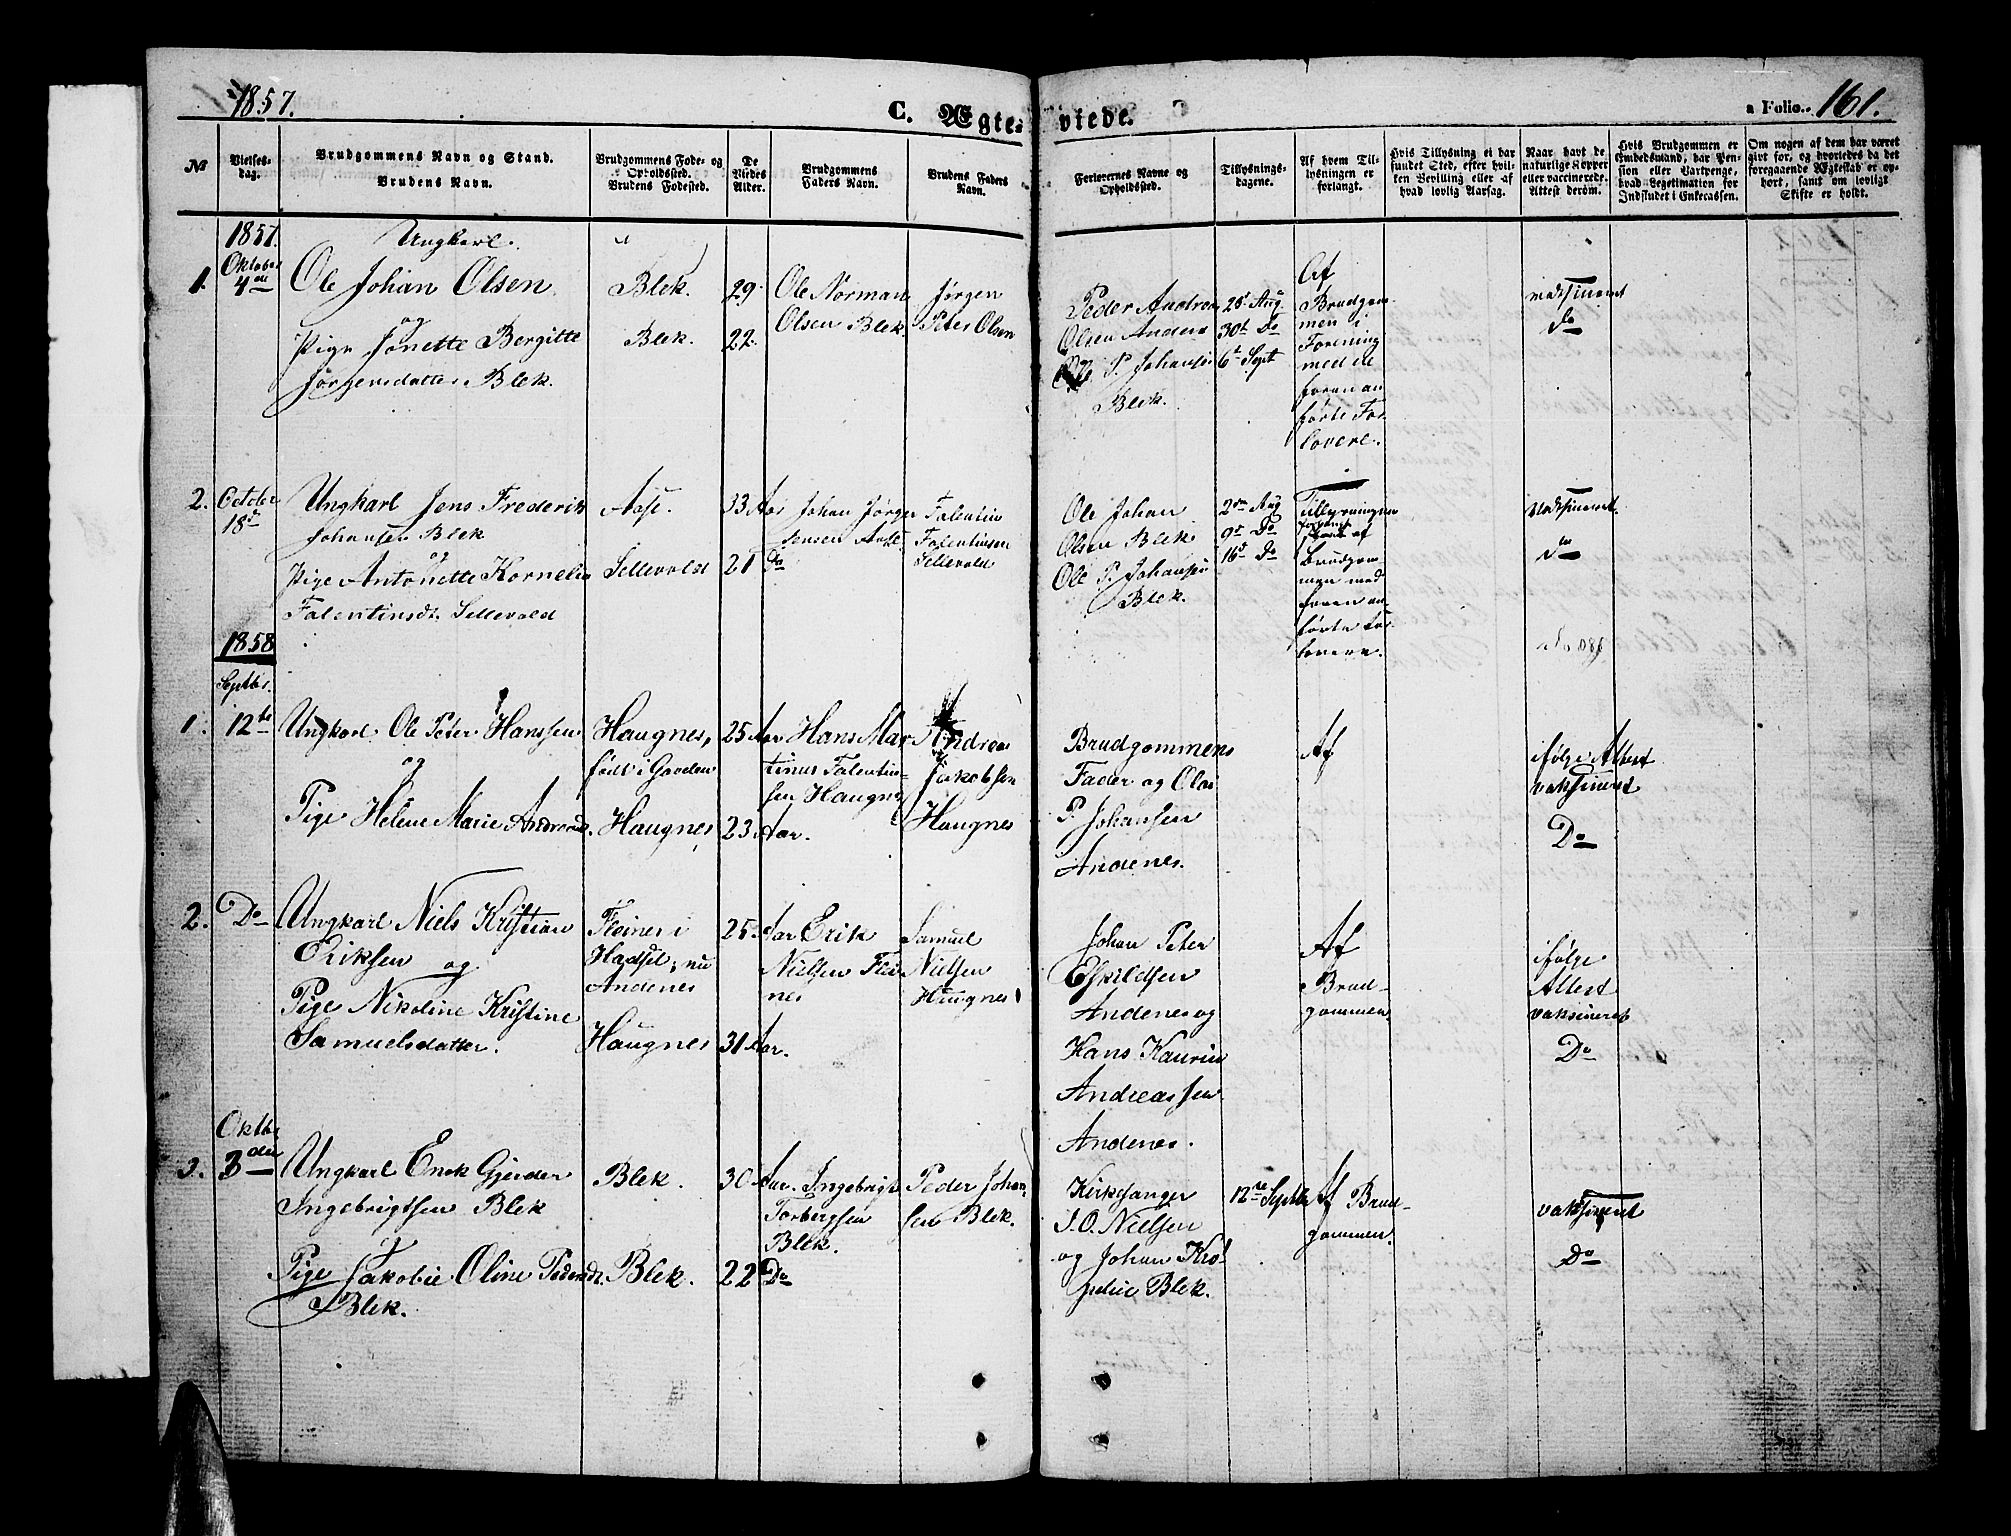 1857.
C. Ægte-
viede.
a Folio.. 161.
№
Vielses-
dag.
Brudgommens Navn og Stand.
Brudens Navn.
Brudgommens Føde- og
Opholdssted.
Brudens Fødested.
De
Viedes
Alder.
Brudgommens
Faders Navn.
Brudens Faders
Navn.
Forlovernes Navne og
Opholdssted.
Tillysnings-
dagene.
Af hvem Til-
lysningen er
forlangt.
Hvis Tillysning ei har
fundet Sted, efter hvil-
ken Bevilling eller af
hvad lovlig Aarsag.
Naar havt de
naturlige Kopper
eller vaccinerede.
Attest derom.
Hvis Brudgommen er
Embedsmand, har Pen-
sion eller Vartpenge,
hvad Legetimation for
Indskudet i Enkecassen.
Om nogen af dem har været
gift før, og hvorledes da det
foregaaende Ægteskab er op-
hørt, samt om lovligt
Skifte er holdt.
1857.
1. Oktober
4de
Ungkarl.
Ole Johan Olsen
og
Pige Jonette Bergitte
Jørgensdatter Blek.
Blek.
Blek.
29
22
Ole Norman
Olsen Blek.
Jørgen
Peter Olsen
Peder Andreas
Olsen Andenes
P. Johansen
Blek.
28 Aug
30t Do
6t Sept
Af
Brudgom-
men i
Forening
med de
foran an-
førte For-
lovere.
vaksineret
Do
2. October
18de
Ungkarl Jens Frederik
Johansen Blek
og
Pige Antonette Kornelia
Falentinsdt. Sellevold
Aase.
Sellevold
33 Aar
21 Do
Johan Jørgen
Jensen Aase.
Falentin
Falentinsen
Sellevold
Ole Johan
Olsen Blek
Ole P. Johansen
Blek.
2den Aug
9t Do
16d Do
Tillysningen
af
Brudgom-
men med
foran an-
førte For-
lovere.
vaksineret.
Do
1858
Septbr.
1. 12te
Ungkarl Ole Peter Hanssen
og
Pige Helene Marie Andreasd.
Haugnes,
født i Gaarden
Haugnes
25 Aar
23 Aar.
Hans Mar
tinus Falentin-
sen Haugnes
Andreas
Jakobsen
Haugnes
Brudgommens
Fader og Olai
P. Johansen
Andenes.
Af
ifølge Attest
vaksineret
Do
2. Do
Ungkarl Niels Kristian
Eriksen og
Pige Nikoline Kristine
Samuelsdatter.
Fleines i
Hadsel, nu
Andenes
Haugnes
25 Aar
31 Aar.
Erik
Nielsen Flei
nes
Samuel
Nielsen
Haugnes
Johan Peter
Eskildsen
Andenes og
Hans Kaurin
Andreassen
Andenes.
Af
Brud-
gommen.
ifølge
Attest
vaksineret
Do
Oktbr
3. 3den
Ungkarl Enok Gjerder
Ingebrigtsen Blek
Pige Jakobie Oline Pedersdt.
Blek.
Blek.
Blek.
30 Aar.
22 Do
Ingebrigt
Torbergsen
Blek.
Peder Johan
sen Blek.
Kirkesanger
J.O. Nielsen
og Johan
Blek.
12te Septbr
Af Brud-
gommen.
vaksineret
Do